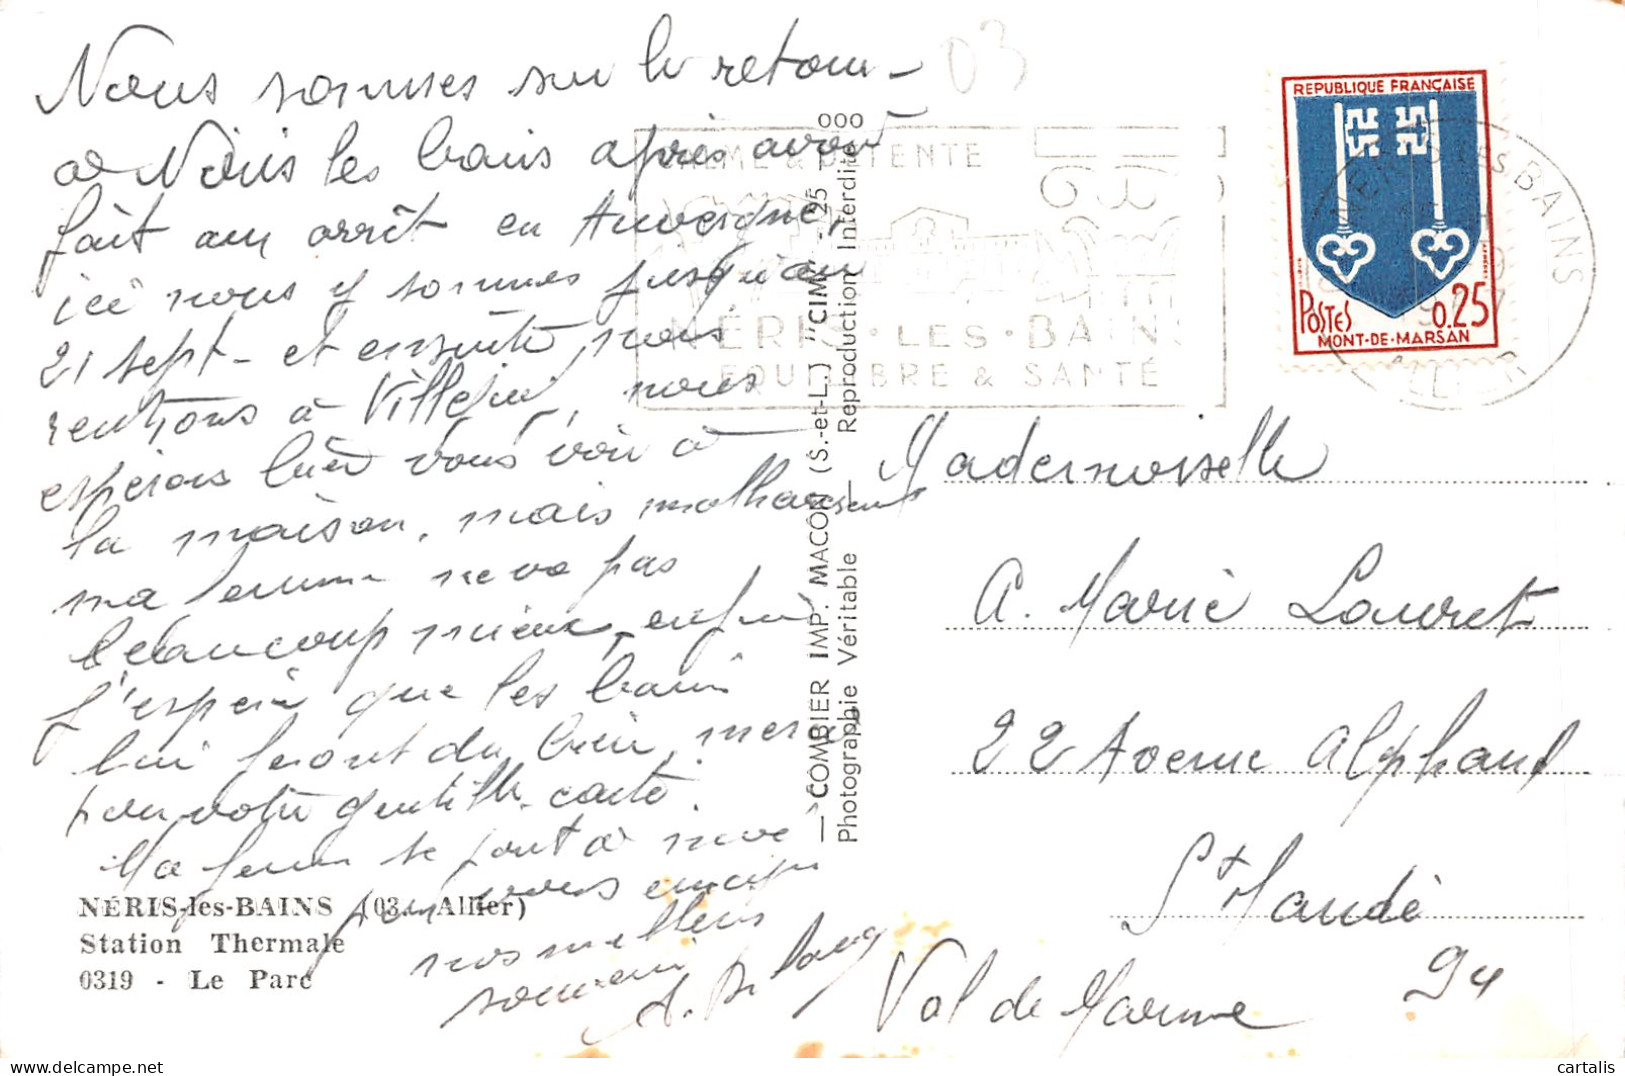 Nous sommes sur le retour
a Néris les bains après avoir
fait un arrêt en Auvergne,
ici nous y sommes jusqu'au
21 sept - et ensuite nous
rentrons à Villejuif, nous
espérons bien vous voir à
la maison, mais malheureusement
ma femme ne va pas
beaucoup mieux, enfin
j'espère que les bains
lui feront du bien, merci
pour votre gentille carte.
Ma femme se joint à moi
pour vous envoyer
nos meilleurs
souvenirs
03
CALME & DETENTE
NÉRIS • LES • BAINS
EQUILIBRE & SANTÉ
NERIS LES BAINS
ALLIER
REPUBLIQUE FRANÇAISE
POSTES 0.25
MONT-DE-MARSAN
Mademoiselle
A. Marie Lauret
22 Avenue Alphand
St Mandé
Val de Marne 94
— COMBIER IMP. MACON (S.-et-L.) "CIM" - 25 000
Photographie Véritable — Reproduction Interdite
NÉRIS-les-BAINS (03. - Allier)
Station Thermale
0319 - Le Parc
cartalis
delcampe.net